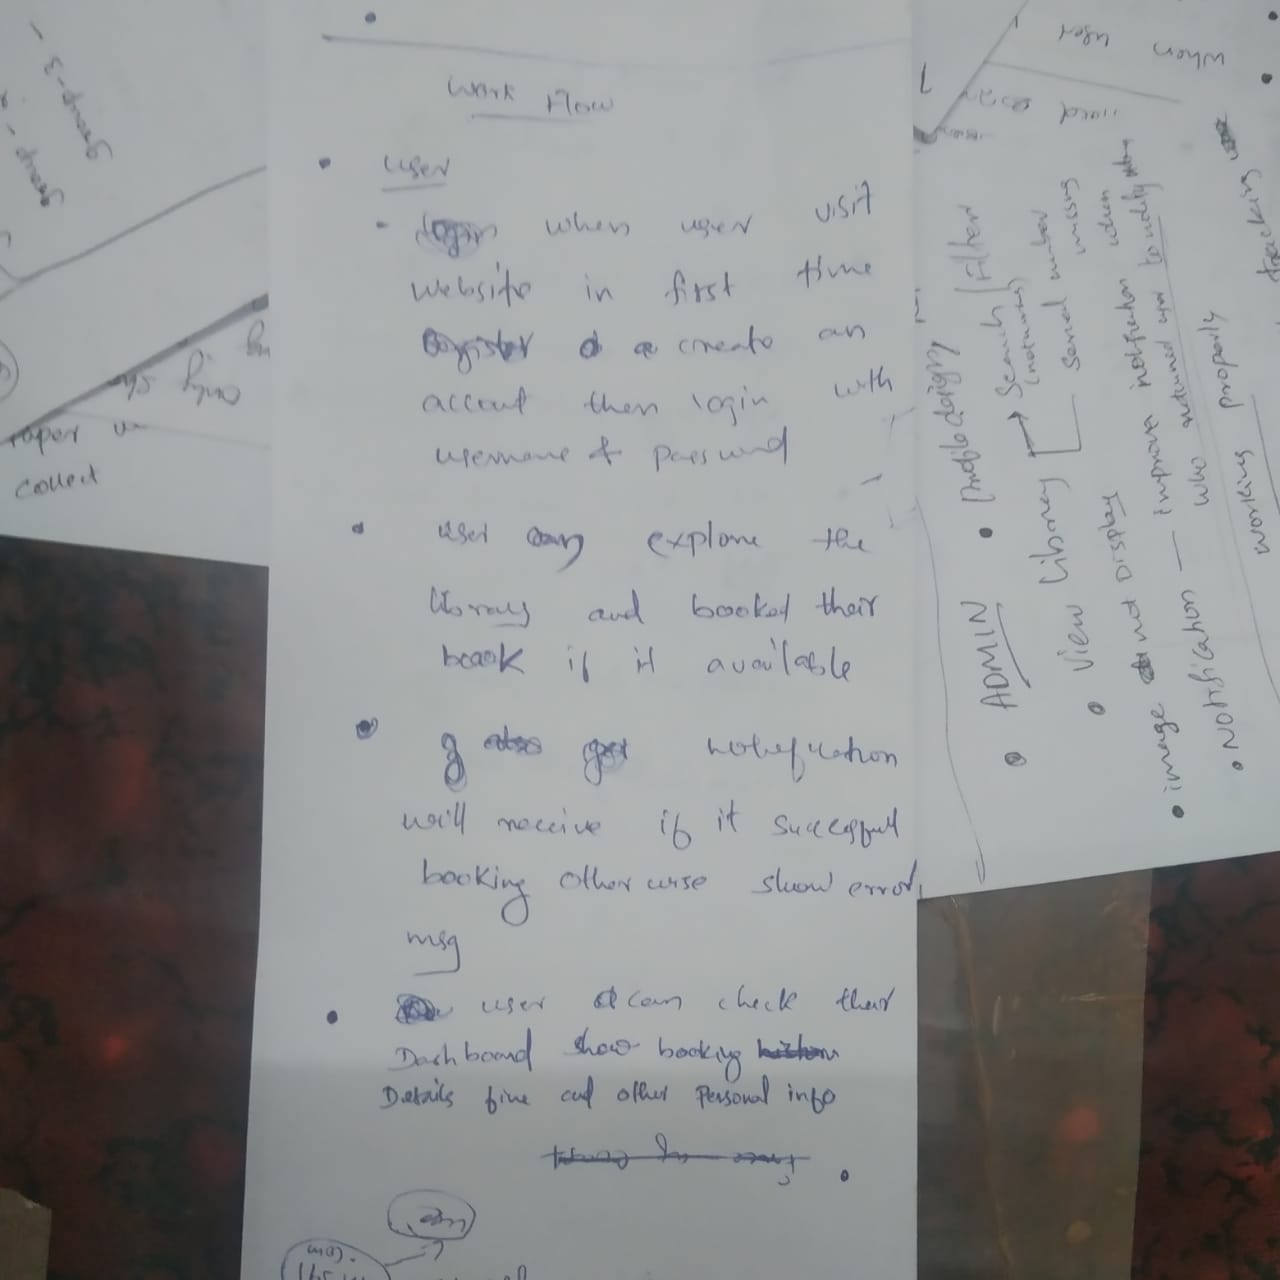 Work Flow
• user
- login when user visit
website in first time
Register & a create an
accout then login with
username & password
• user can explore the
library and booked their
book if it available
• notification
will receive if it successful
booking otherwise show error
msg
• user can check their
Dashboard show booking history
Details fine and other Personal info
group-3
group-
only
Paper
collect
when
user
• ADMIN • Profile design
• View library → Search / Filter
Serial number missing
• image not Display
• Notification — Improve notification when
who returned to notify
working properly
tracking